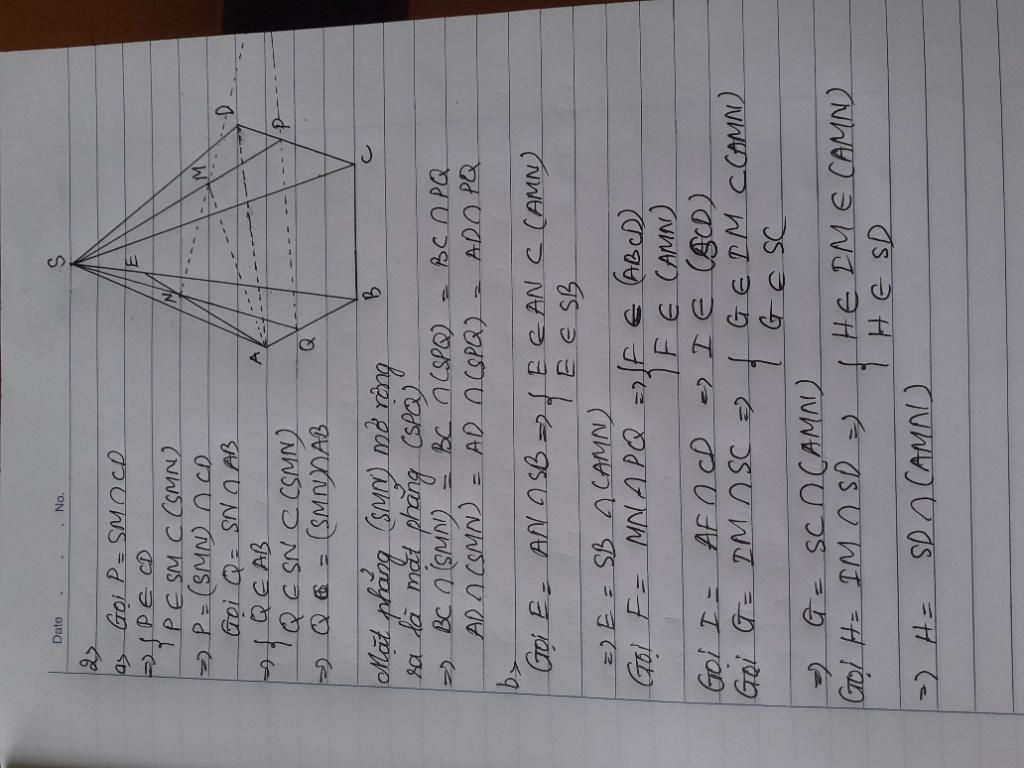 Date . . . No.
2>
a> Gọi P = SM ∩ CD
=> { P ∈ CD
P ∈ SM ⊂ (SMN)
=> P = (SMN) ∩ CD
Gọi Q = SN ∩ AB
=> { Q ∈ AB
Q ∈ SN ⊂ (SMN)
=> Q = (SMN) ∩ AB
Mặt phẳng (SMN) mở rộng
ra là mặt phẳng (SPQ)
=> BC ∩ (SMN) = BC ∩ (SPQ) = BC ∩ PQ
AD ∩ (SMN) = AD ∩ (SPQ) = AD ∩ PQ
b>
Gọi E = AN ∩ SB => { E ∈ AN ⊂ (AMN)
E ∈ SB
=> E = SB ∩ (AMN)
Gọi F = MN ∩ PQ => { F ∈ (ABCD)
F ∈ (AMN)
Gọi I = AF ∩ CD => I ∈ (BCD)
Gọi G = IM ∩ SC => { G ∈ IM ⊂ (AMN)
G ∈ SC
=> G = SC ∩ (AMN)
Gọi H = IM ∩ SD => { H ∈ IM ∈ (AMN)
H ∈ SD
=> H = SD ∩ (AMN)
S
E
N
M
D
A
P
Q
C
B